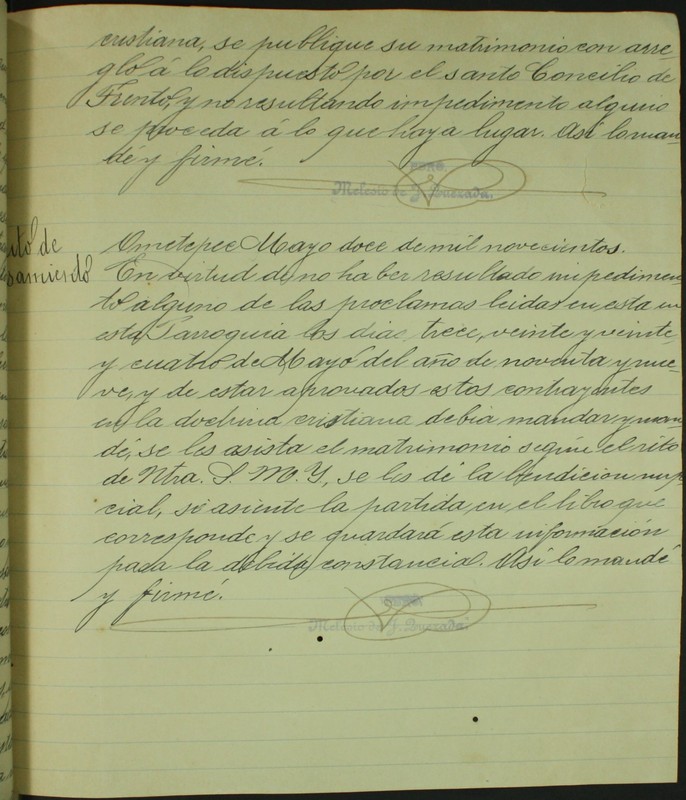 cristiana, se publique su matrimonio con arre-
gló á lo dispuesto por el santo Concilio de
Trento, y no resultando impedimento alguno
se proceda á lo que haya lugar. Así lo man-
dé y firmé.
PBRO.
Melesio de J. Quezada.
uto de
samiento
Ometepec Mayo doce de mil novecientos.
En virtud de no haber resultado impedimen-
to alguno de las proclamas leidas en esta en
esta Parroquia los dias trece, veinte y veinte
y cuatro de Mayo del año de noventa y nue-
ve, y de estar aprovados estos contrayentes
en la doctrina cristiana debia mandar y man-
dé, se les asista el matrimonio según el rito
de Ntra. S. M. Y, se les dé la bendicion nup-
cial, se asiente la partida en el libro que
corresponde y se guardará esta información
para la debida constancia. Así lo mandé
y firmé.
PBRO.
Melesio de J. Quezada.